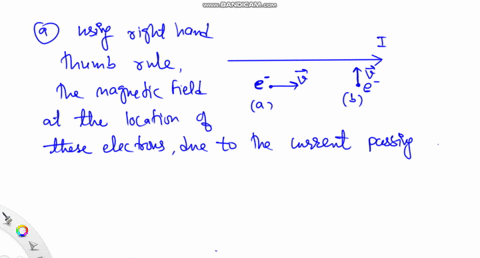 WWW.BANDICAM.COM
(a) using right hand
thumb rule,
The magnetic field
at the location of
these electrons, due to the current passing
I
e⁻ v⃗
(a)
v⃗
e⁻
(b)